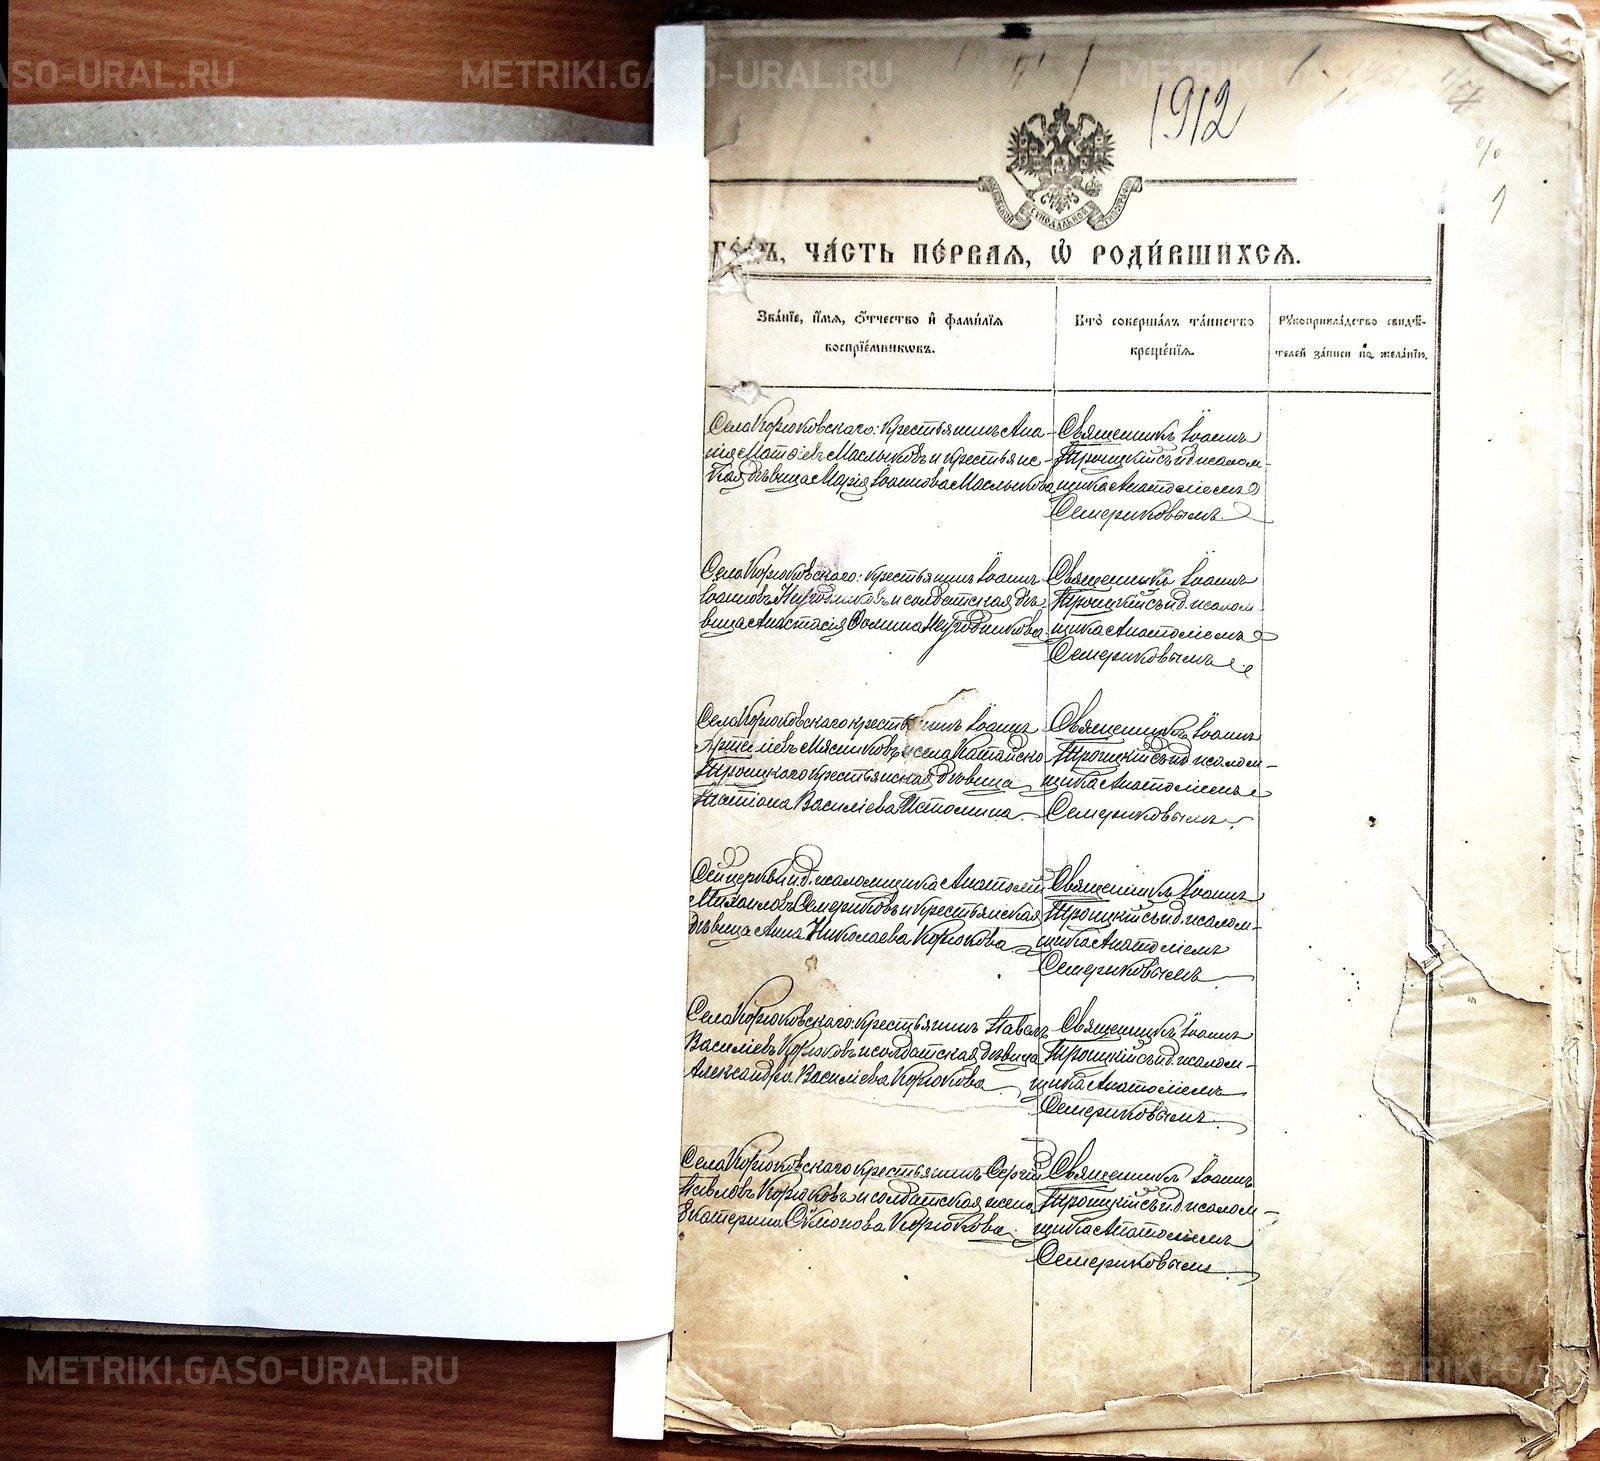 METRIKI.GASO-URAL.RU
1912
МОСКОВСКОЙ СѴНОДАЛЬНОЙ ТИПОГРАФІИ
ЧА́СТЬ ПЕ́РВАѦ, Ѡ҆ РОДИ́ВШИХСѦ.
Зва́нїе, и҆́мѧ, ѻ҆́тчество и҆ фами́лїѧ
воспрїе́мникѡвъ.
Кто̀ соверша́лъ та́инство
креще́нїѧ.
Рꙋкоприкла́дство свидѣ́-
телей за́писи по жела́нїю.
Села Корюковскаго: крестьянинъ Ана-
нія Матѳіевъ Маслыковъ и крестьянс-
кая дѣвица Марія Іоаннова Маслыкова
Священникъ Іоаннъ
Троицкій съ и.д. псалом-
щика Анатоліемъ
Семериковымъ.
Села Корюковскаго: крестьянинъ Іоаннъ
Іоанновъ и солдатская дѣ-
вица Анастасія Ѳомина
Священникъ Іоаннъ
Троицкій съ и.д. псалом
щика Анатоліемъ
Семериковымъ
Села Корюковскаго крестьянинъ Іоаннъ
Артеміевъ Мясниковъ и села Катайско
Троицкаго крестьянская дѣвица
Татіана Василіева Истомина.
Священникъ Іоаннъ
Троицкій съ и.д. псалом-
щика Анатоліемъ
Семериковымъ.
Сей церкви и.д. псаломщика Анатолій
Михаиловъ Семериковъ и крестьянская
дѣвица Анна Николаева Корюкова
Священникъ Іоаннъ
Троицкій съ и.д. псалом-
щика Анатоліемъ
Семериковымъ.
Села Корюковскаго: крестьянинъ Павелъ
Василіевъ Корюковъ и солдатская дѣвица
Александра Василіева Корюкова
Священникъ Іоаннъ
Троицкій съ и.д. псалом-
щика Анатоліемъ
Семериковымъ.
Села Корюковскаго крестьянинъ Сергій
Павловъ Корюковъ и солдатская жена
Екатерина Сѵмонова Корюкова.
Священникъ Іоаннъ
Троицкій съ и.д. псалом-
щика Анатоліемъ
Семериковымъ
METRIKI.GASO-URAL.RU